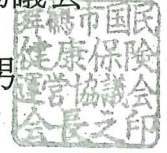 議会
男
市国民
健康保険
運営協議会
会長之印